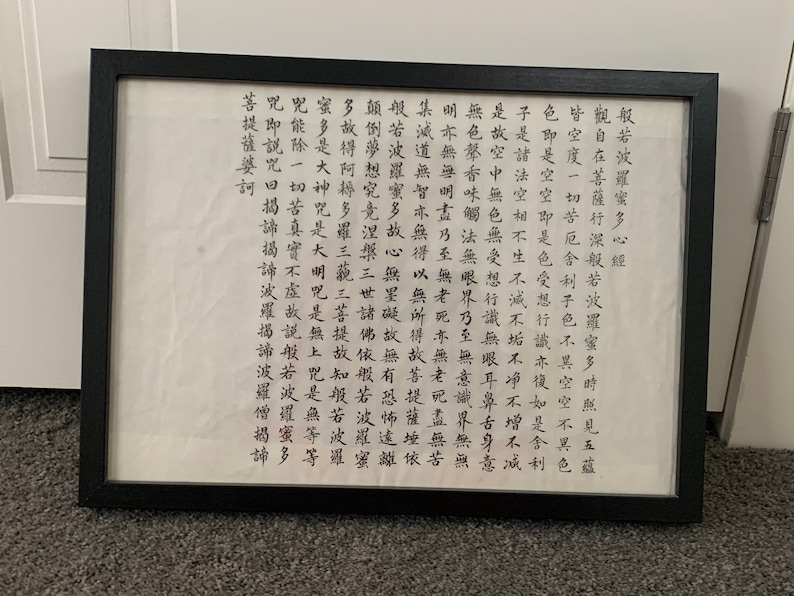 般若波羅蜜多心經
觀自在菩薩行深般若波羅蜜多時照見五蘊
皆空度一切苦厄舍利子色不異空空不異色
色即是空空即是色受想行識亦復如是舍利
子是諸法空相不生不滅不垢不净不增不减
是故空中無色無受想行識無眼耳鼻舌身意
無色聲香味觸法無眼界乃至無意識界無無
明亦無無明盡乃至無老死亦無老死盡無苦
集滅道無智亦無得以無所得故菩提薩埵依
般若波羅蜜多故心無罣礙故無有恐怖遠離
顛倒夢想究竟涅槃三世諸佛依般若波羅蜜
多故得阿耨多羅三藐三菩提故知般若波羅
蜜多是大神咒是大明咒是無上咒是無等等
咒能除一切苦真實不虛故説般若波羅蜜多
咒即説咒曰揭諦揭諦波羅揭諦波羅僧揭諦
菩提薩婆訶